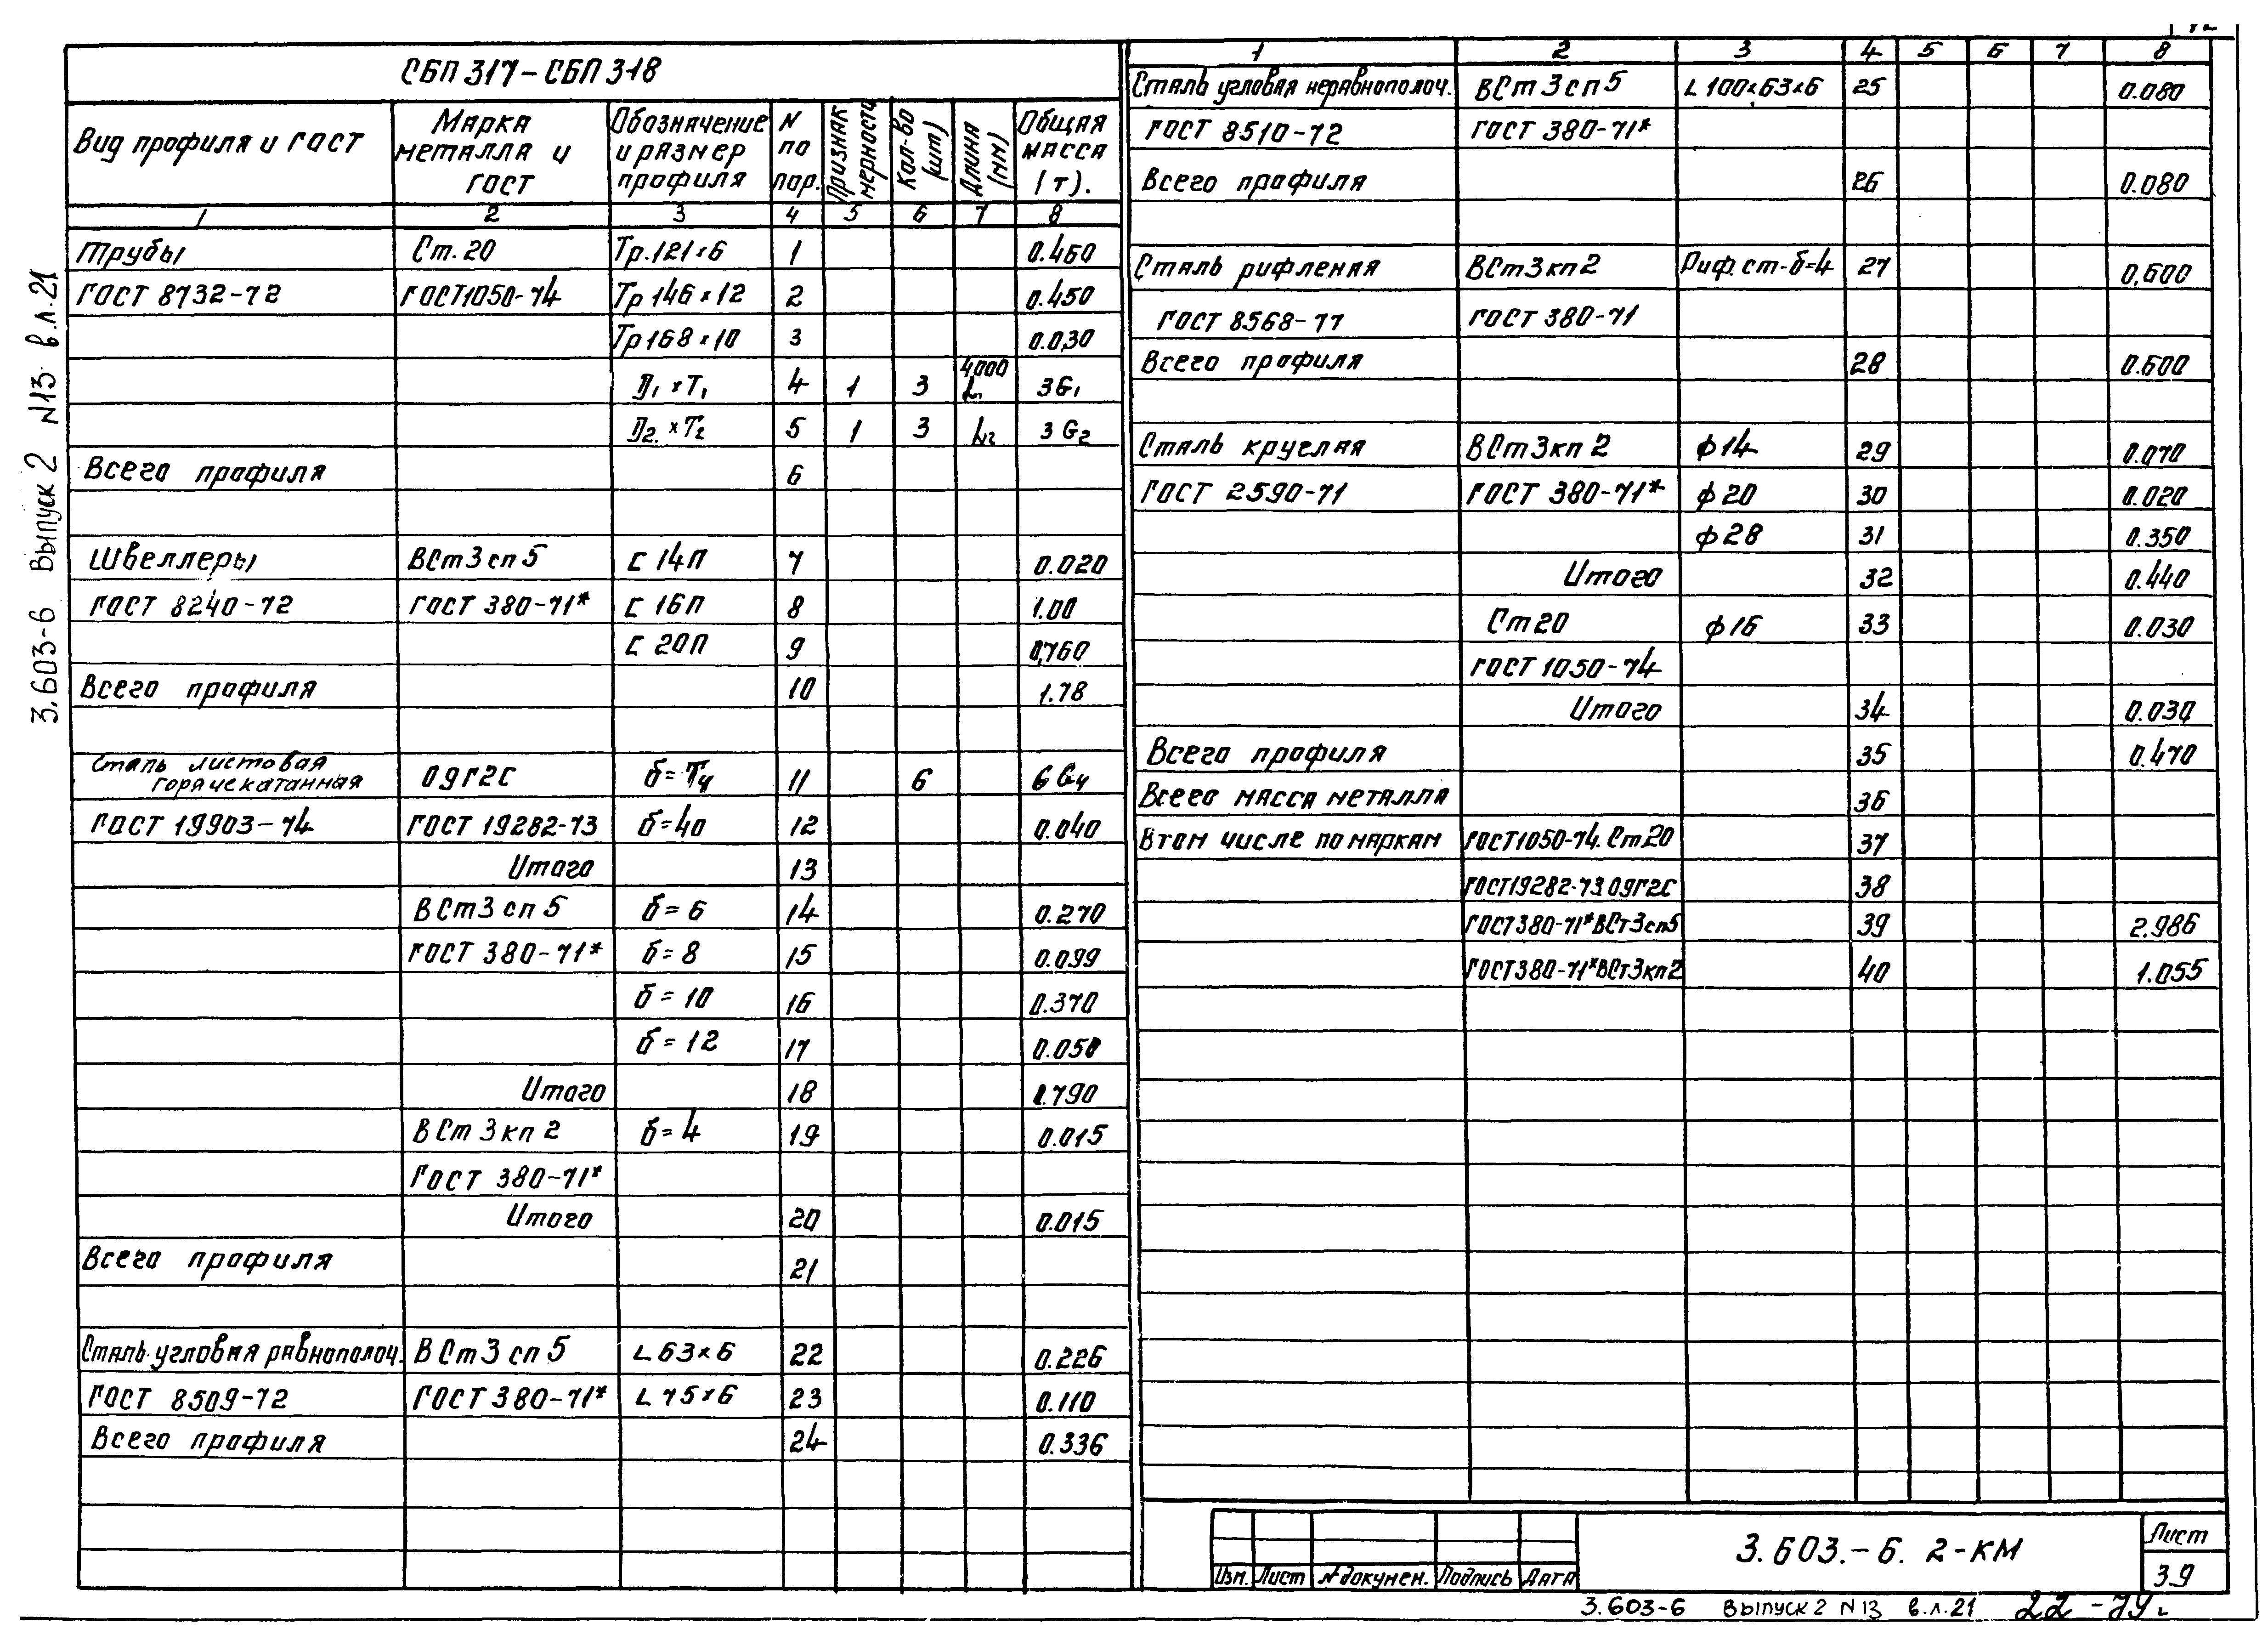 СБП 317-СБП 318
Вид профиля и ГОСТ
Марка металла и ГОСТ
Обозначение и размер профиля
N по пор.
Признак мерности
Кол-во (шт)
Длина (мм)
Общая масса (т).
1 2 3 4 5 6 7 8
Трубы Ст.20 Тр.121×6 1 0.460
ГОСТ 8732-72 ГОСТ1050-74 Тр 146×12 2 0.450
Тр168×10 3 0.030
Д1 × Т1 4 1 3 4000 L1 3G1
Д2 × Т2 5 1 3 L2 3G2
Всего профиля 6
Швеллеры ВСт3сп5 С 14П 7 0.020
ГОСТ 8240-72 ГОСТ 380-71* С 16П 8 1.00
С 20П 9 0,760
Всего профиля 10 1.78
Сталь листовая горячекатанная 09Г2С б=Т4 11 6 6G4
ГОСТ 19903-74 ГОСТ 19282-73 б=40 12 0.040
Итого 13
ВСт3сп5 б=6 14 0.270
ГОСТ 380-71* б=8 15 0.099
б=10 16 0.370
б=12 17 0.050
Итого 18 0.790
ВСт3кп2 б=4 19 0.015
ГОСТ 380-71*
Итого 20 0.015
Всего профиля 21
Сталь угловая равнополоч. ВСт3сп5 L 63×6 22 0.226
ГОСТ 8509-72 ГОСТ 380-71* L 75×6 23 0.110
Всего профиля 24 0.336
1 2 3 4 5 6 7 8
Сталь угловая неравнополоч. ВСт3сп5 L 100×63×6 25 0.080
ГОСТ 8510-72 ГОСТ 380-71*
Всего профиля 26 0.080
Сталь рифленая ВСт3кп2 Риф.ст-б=4 27 0,600
ГОСТ 8568-77 ГОСТ 380-71
Всего профиля 28 0.600
Сталь круглая ВСт3кп2 ф14 29 0.070
ГОСТ 2590-71 ГОСТ 380-71* ф20 30 0.020
ф28 31 0.350
Итого 32 0.440
Ст20 ф16 33 0.030
ГОСТ 1050-74
Итого 34 0.030
Всего профиля 35 0.470
Всего масса металла 36
В том числе по маркам ГОСТ1050-74. Ст20 37
ГОСТ19282-73 09Г2С 38
ГОСТ380-71* ВСт3сп5 39 2.986
ГОСТ380-71* ВСт3кп2 40 1.055
Изм. Лист №докумен. Подпись Дата
3.603.-6. 2-КМ
Лист
39
3.603-6 Выпуск 2 N13 в.л.21
3.603-6 Выпуск 2 N13 в.л.21 22-79г